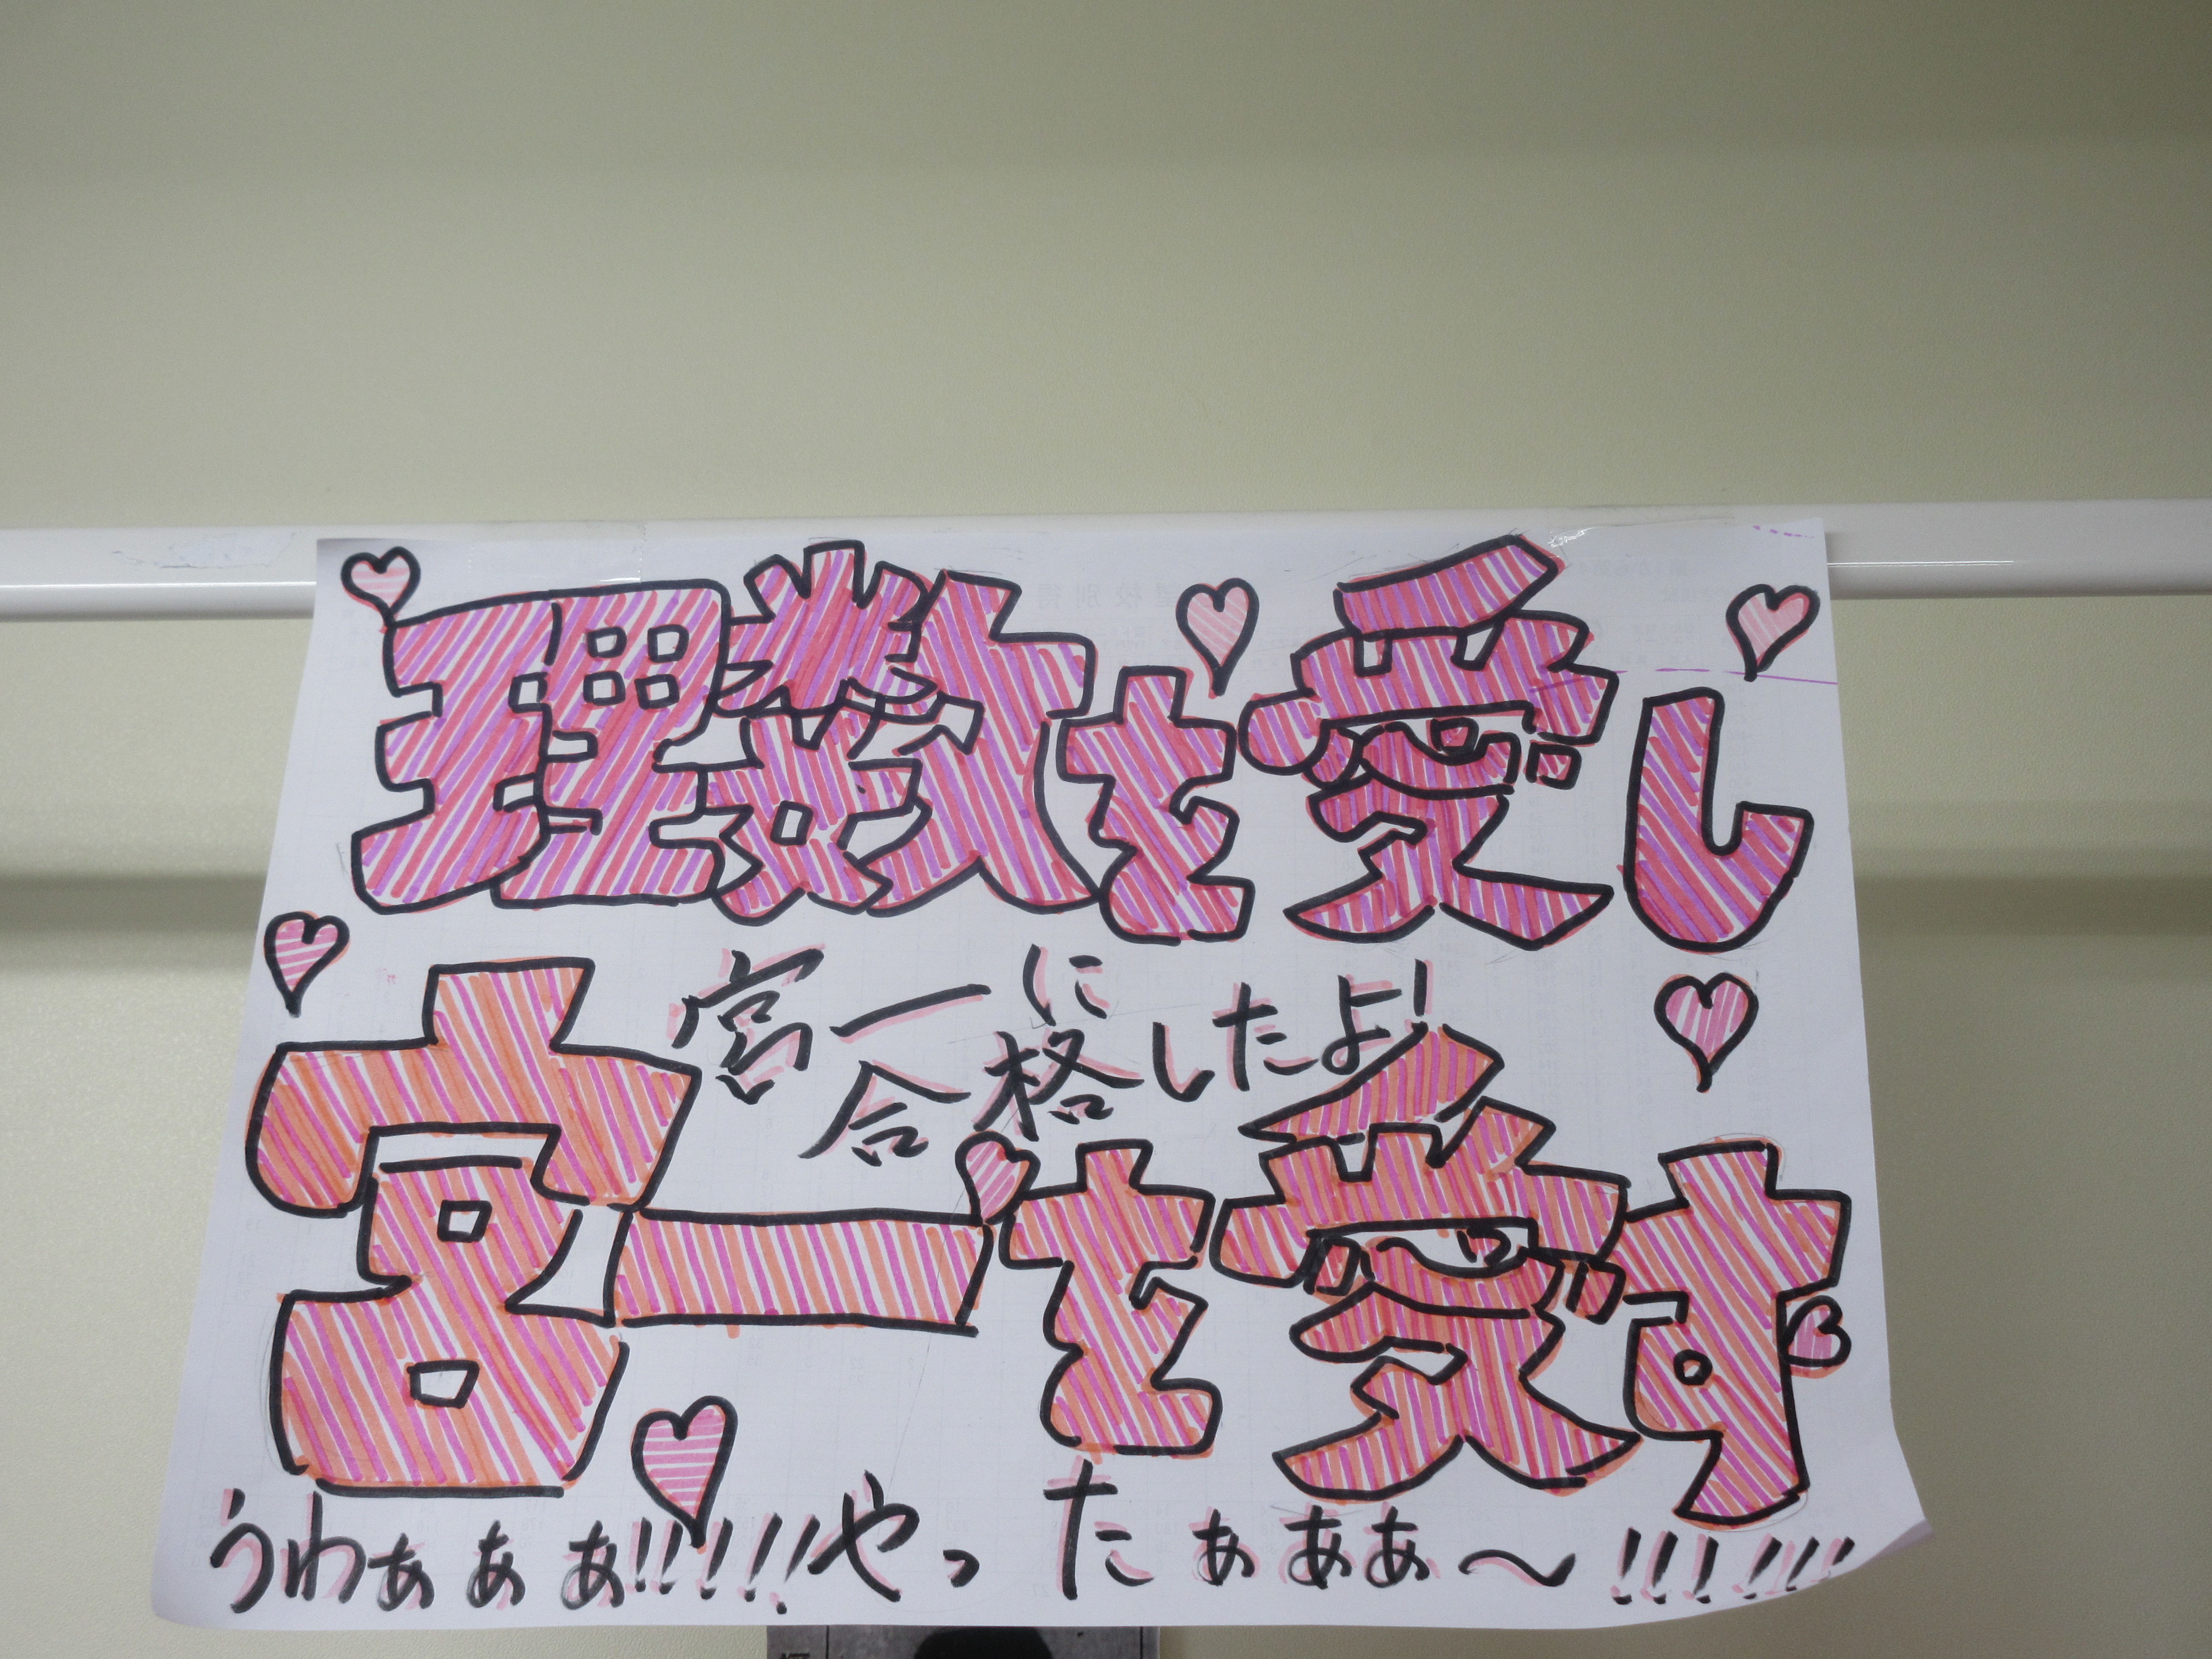 理数を愛し
宮一に
合格したよ!
宮一を愛す
うわぁぁぁ!!!!!!やったぁぁぁ〜!!!!!!